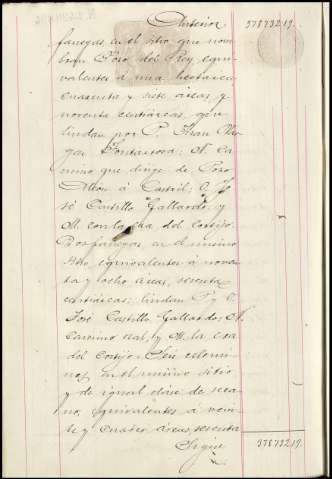 Anterior 378732.19.
fanegas en el sitio que nom
bran Pozo del Rey, equi
valentes á una hectarea
cuarenta y siete áreas y
noventa centiáreas, que
lindan por P. Fran
N. ca
mino que dirige de Pozo
Alcon á Castril; O. Jo
sé Castillo Gallardo, y
M. con la era del cortijo.
Dos fanegas en el mismo
sitio, equivalentes á noven
ta y ocho áreas, sesenta
centiáreas; lindan P. y O.
José Castillo Gallardo; N.
Camino real, y M. la era
del Cortijo. Seis celemi
nes en el mismo sitio
y de igual clase de seca
no, equivalentes á vein
te y cuatro áreas, sesenta
Sigue 378732.19.